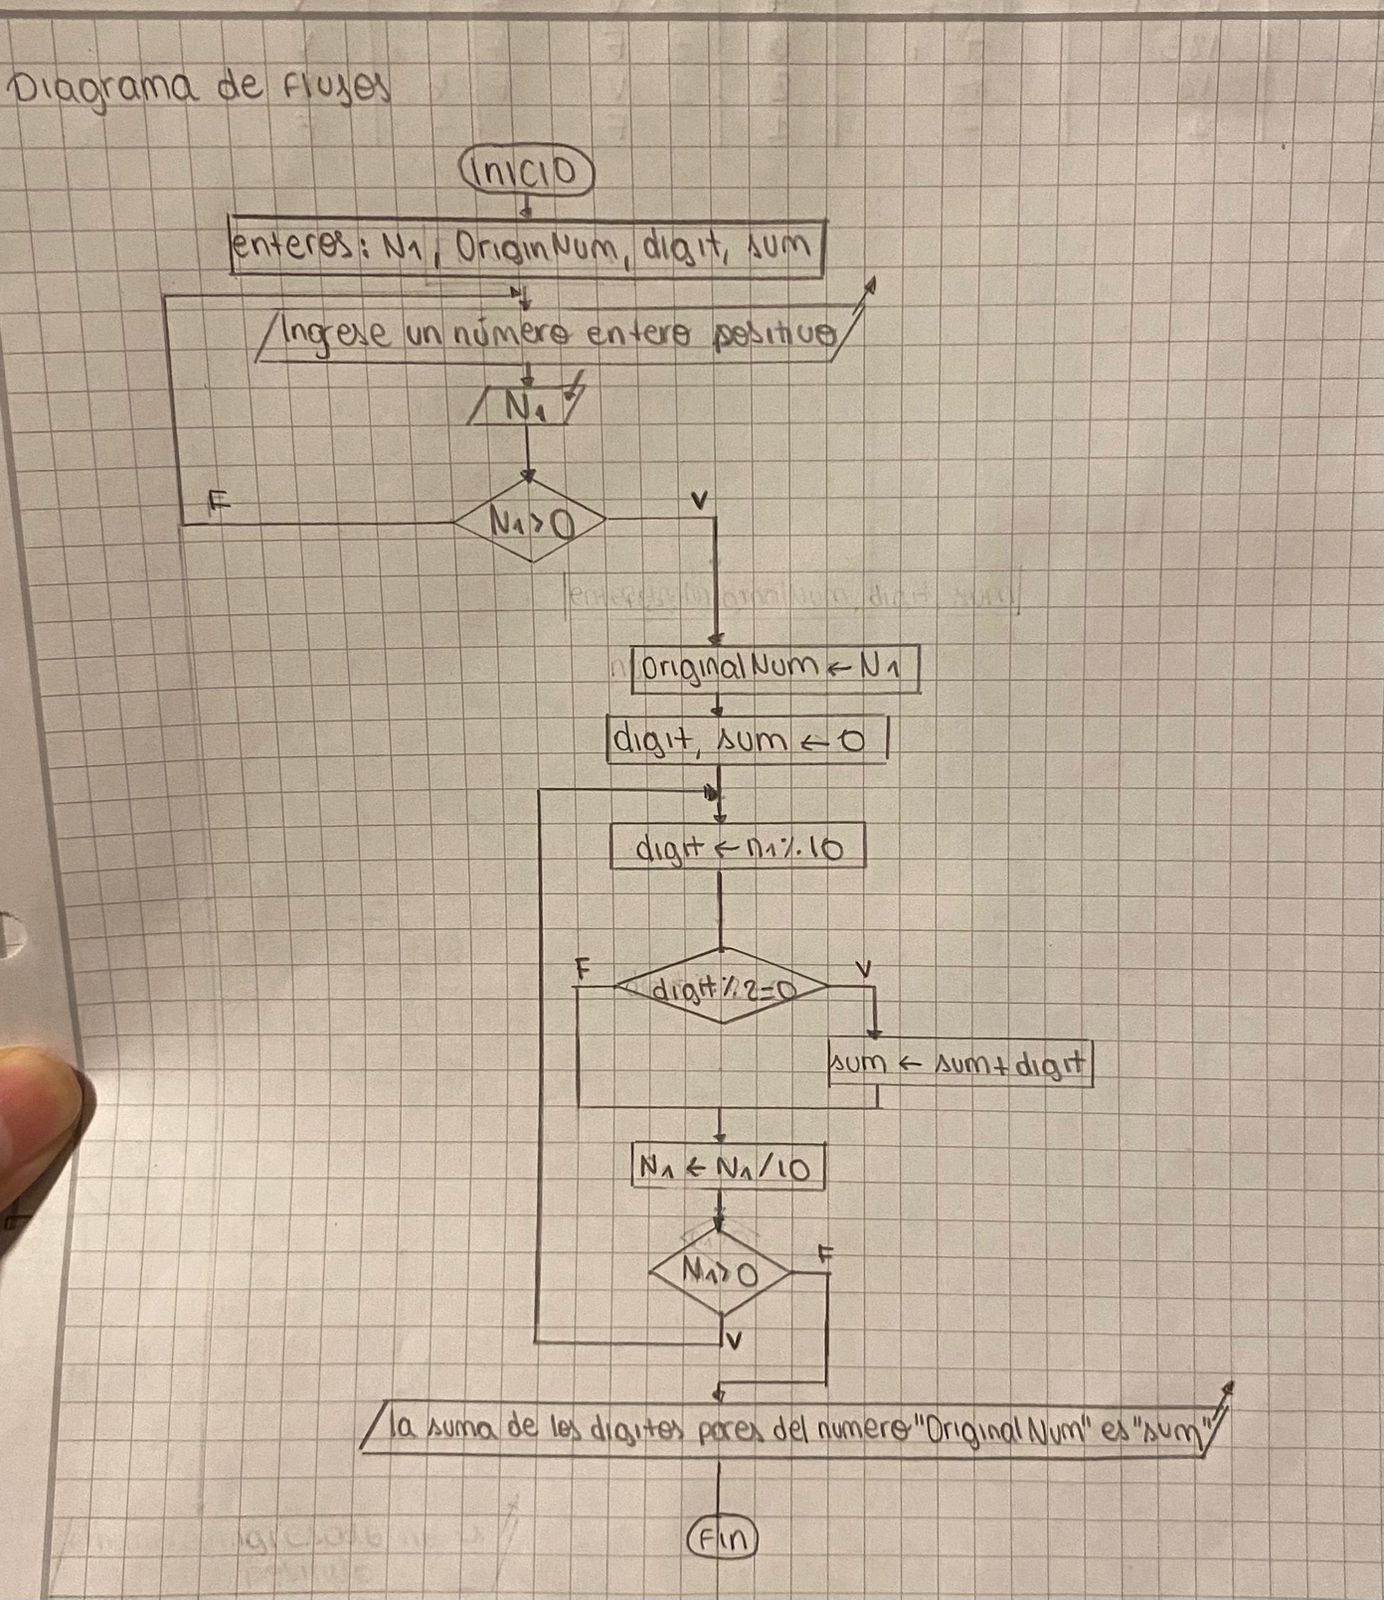 Diagrama de flujos
Inicio
enteros: N1, OriginNum, digit, sum
Ingrese un número entero positivo
N1
N1>0
F
V
OriginalNum ← N1
digit, sum ← 0
digit ← n1%10
digit%2=0
F
V
sum ← sum+digit
N1 ← N1/10
N1>0
F
V
la suma de los digitos pares del numero "OriginalNum" es "sum"
Fin